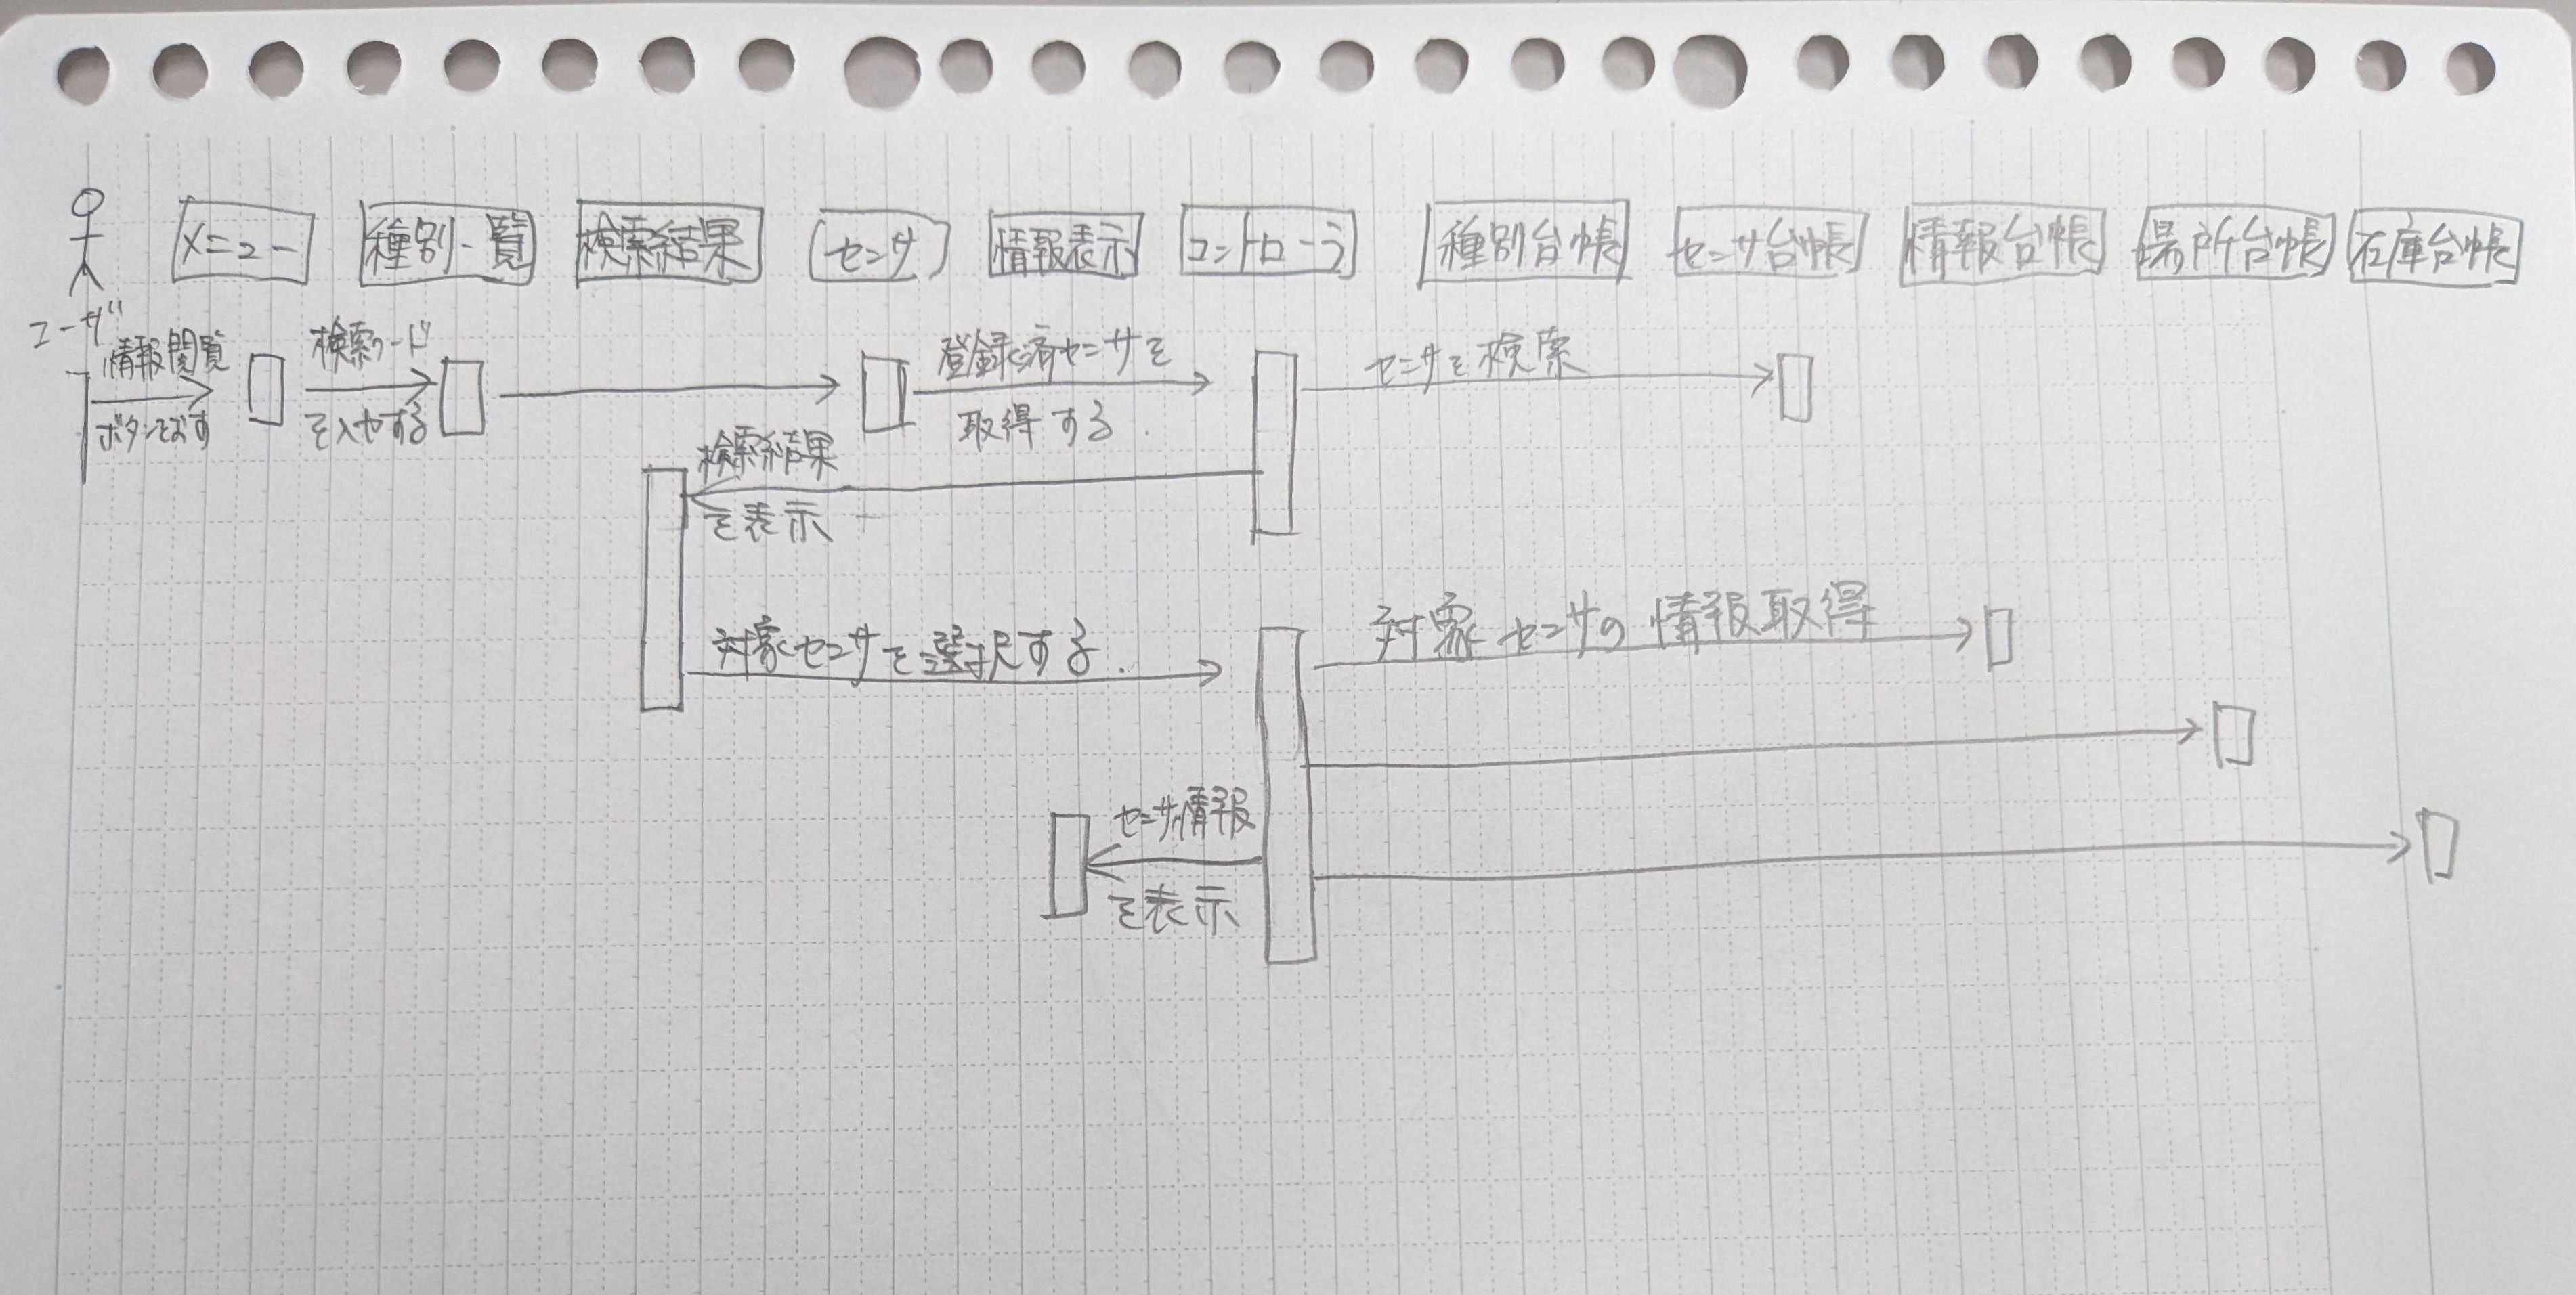 メニュー
種別一覧
検索結果
センサ
情報表示
コントローラ
種別台帳
センサ台帳
情報台帳
場所台帳
在庫台帳
ユーザ
情報閲覧
ボタンをおす
検索ワード
を入力する
登録済センサを
取得する.
センサを検索
検索結果
を表示
対象センサを選択する.
対象センサの情報取得
センサ情報
を表示